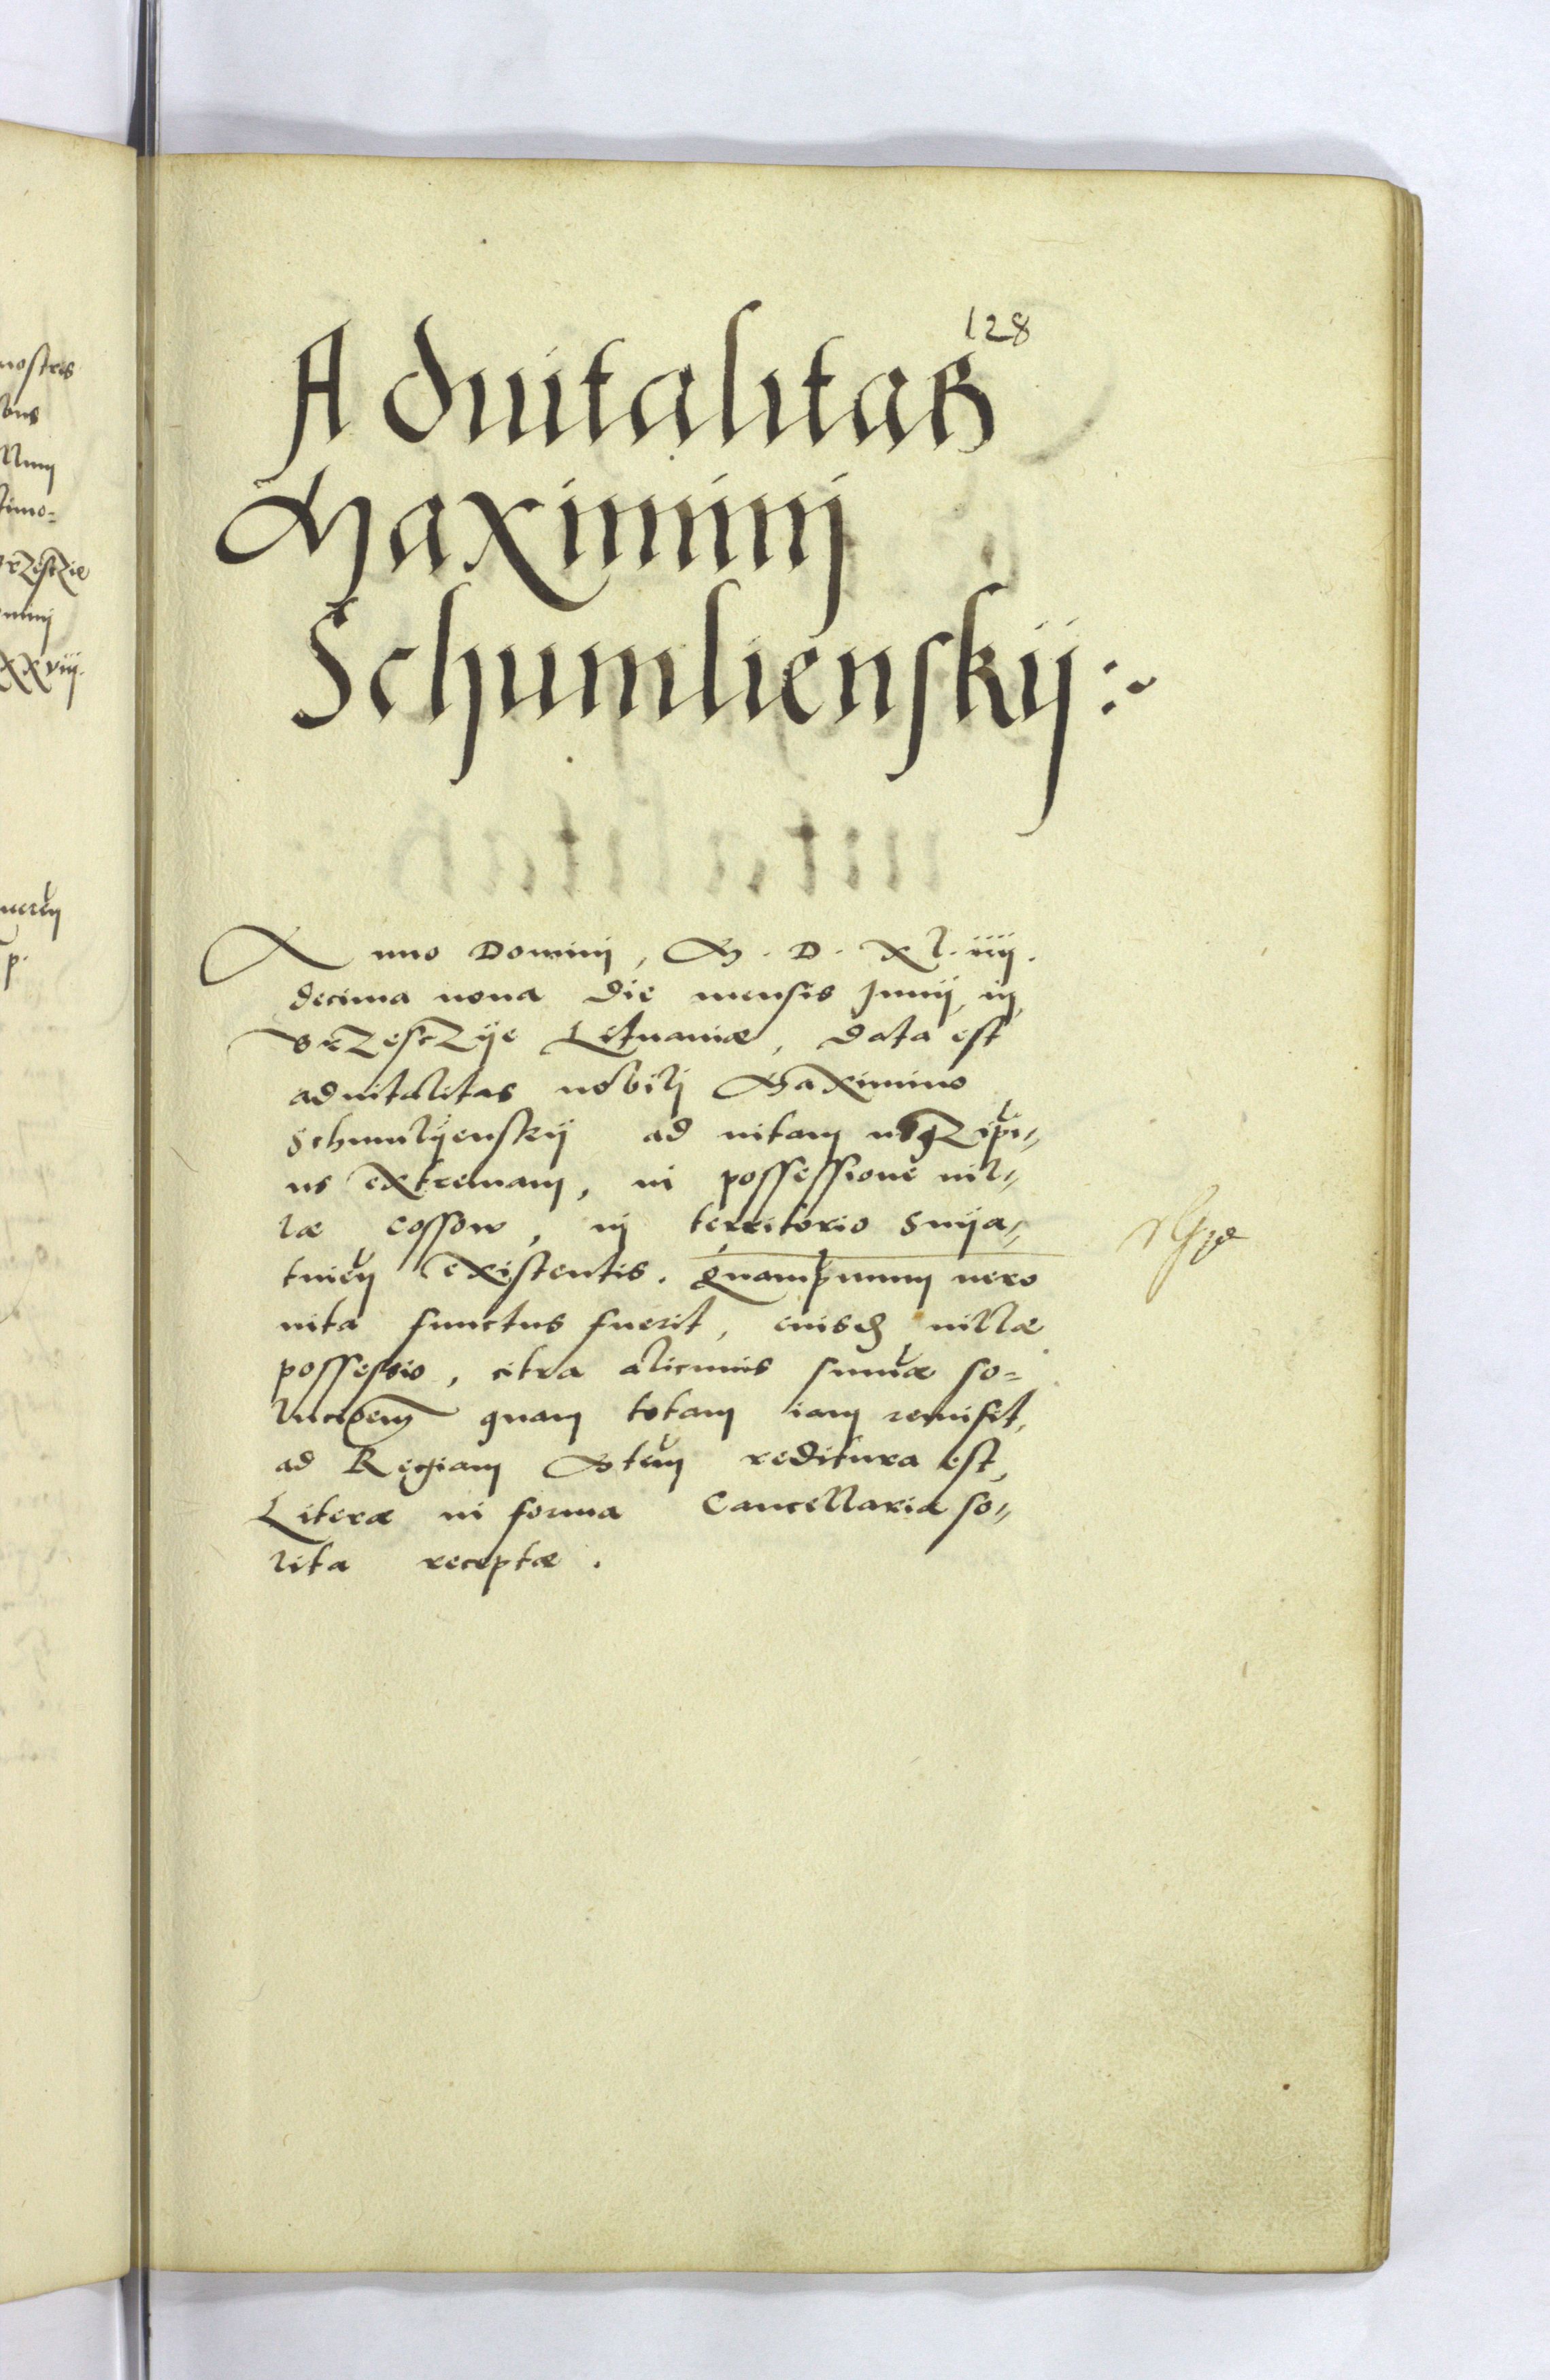 128
Aduitalitas
Maximini
Schumlienskij :~
Anno Domini, M. D. XL. iiij.
decima nona die mensis Junij, in
Brzesczije Lituaniæ, data est
aduitalitas nobili Maximino
Schumlyenskij ad uitam usq3 ipi=
us extremam, in possessione uil=
læ Cossow, in territorio Snija=
tinen existentis. Quamprimum uero
uita functus fuerit, eiusd uillæ
possessio, citra alicuius summæ so=
lucionem quam totam iam remisit,
ad Regiam Mtem reditura est,
Literæ in forma Cancellariæ so=
lita receptæ.
nostris
bus
llum
timo=
rzesczie
omini
xxviij.
p.